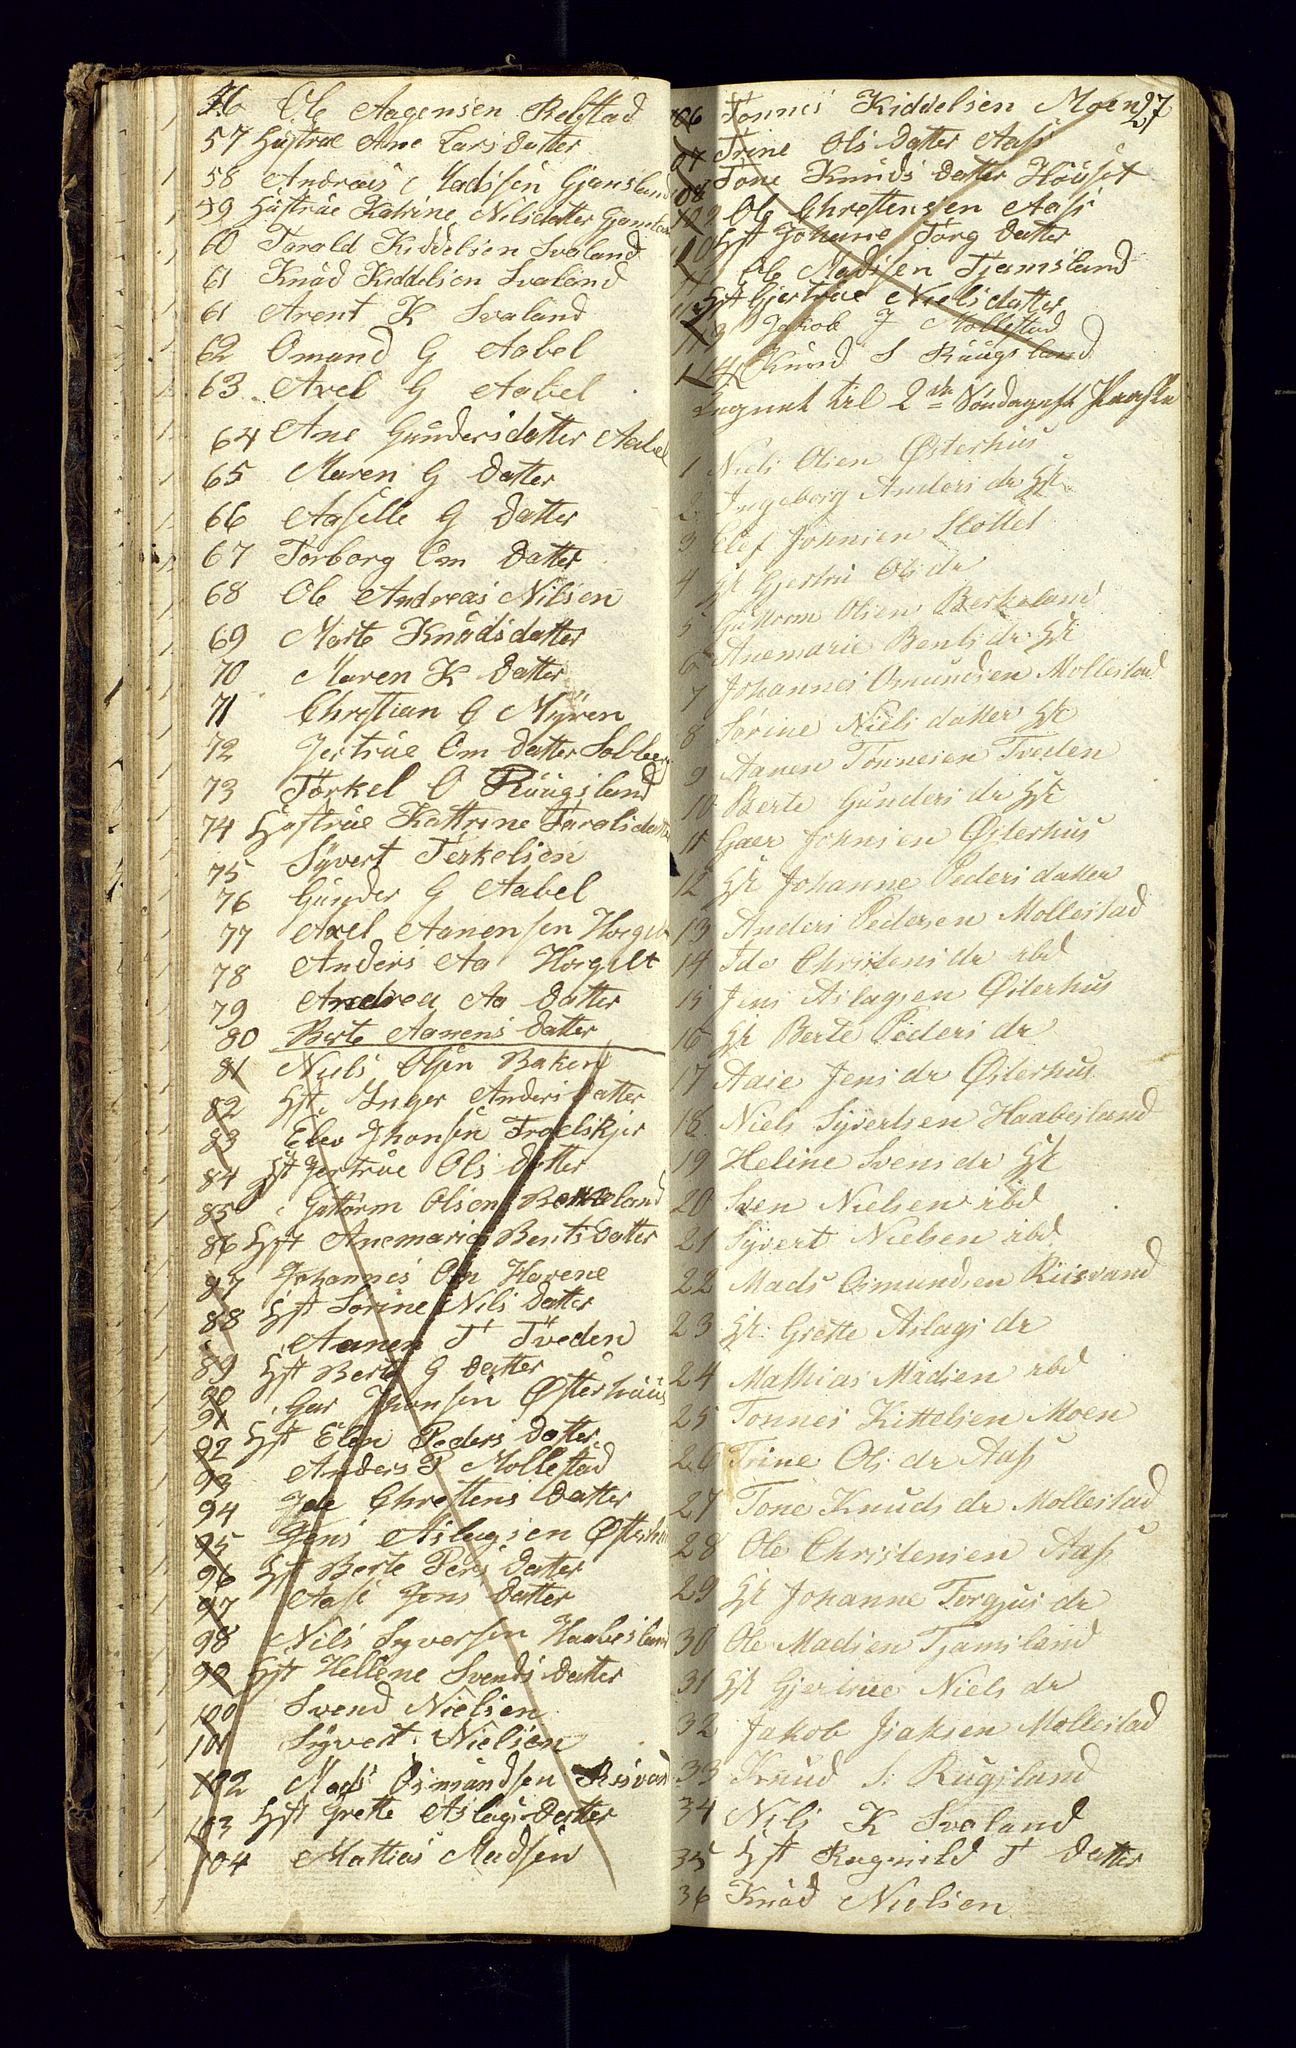 56 Ole Aagensen Relstad
57 Hustrue Ane Larsdatter
58 Andreas Madssen Gjamsland
59 Hustrue Katrine Nilsdatter Gjamsland
60 Tarald Kiddelsen Svaland
61 Knud Kiddelsen Svaland
61 Arent K Svaland
62 Omund G Aabel
63 Axel G Aabel
64 Ane Gundersdatter Aabel
65 Maren G Datter
66 Aasille G Datter
67 Torborg Om Datter
68 Ole Andreas Nilsen
69 Marte Knudsdatter
70 Maren K Datter
71 Chrestian G Myren
72 Jertrue Om Datter Solberg
73 Tørkel O Ruugsland
74 Hustrue Kattrine Taralsdatter
75 Syvert Terkelsen
76 Gunder G Aabel
77 Axel Aanensen Horgelt
78 Anders Aa Horgelt
79 Andrea Aa Datter
80 Berte Aanens Datter
81 Niels Olsen Baken
82 Hst. Inger Anders Datter
83 Elev Jhonsen
84 Hst Jertrue Ols Datter
85 Guttorm Olsen Berkeland
86 Hst Anemarie Bents Datter
87 Johannes Om Havene
88 Hst Sorine Nils Datter
Aanen T Tveden
89 Hst Berte G Datter
90
91 Gar Jhonsen Østerhuus
92 Hst Elen Peders Datter
93 Anders P Mollestad
94 Ide Chrestens Datter
95 Jens Aslagsen Østerhus
96 Hst Berte Pers Datter
97 Aase Jens Datter
98 Nils Syversen Haabesland
99 Hst Hellene Svends Datter
100 Svend Nielsen
101 Syvert Nielsen
102 Mads Osmundsen Risvand
103 Hst Grette Aslags Datter
104 Mattias Madsen
27
106 Tønnes Kiddelsen Moen
107 Trine Ols Datter Aass
108 Tone Knuds Datter
109 Ole Chrestensen Aass
110 Hst Johane Torg Datter
111 Ole Madssen Tjamsland
112 Hst Gjertrue Nielsdatter
113 Jakob J Mollestad
114 Knud S Ruugsland
Tegnet til 2de Søndag eft Paaske
1 Niels Olsen Østerhus
2 Ingeborg Anders dr Hst
3 Elef Johnsen Slottet
4 Hst Gjertru Ols dr
5 Guttorm Olsen Berkeland
6 Anemarie Bents dr Hst
7 Johannes Omundsen Mollestad
8 Sørine Niels datter Hst
9 Aanen Tønnesen Tveden
10 Berte Gunders dr Hst
11 Gaer Johnsen Østerhus
12 Hst Johanne Peders datter
13 Anders Pedersen Mollestad
14 Ide Christens dr ibd
15 Jens Aslagsen Østerhus
16 Hst Berte Peders dr
17 Aase Jens dr Østerhus
18 Niels Syvertsen Haabesland
19 Heline Svens dr Hst
20 Sven Nielsen ibd
21 Syvert Nielsen ibd
22 Mads Osmundsen Riisvand
23 Hst Grette Aslags dr
24 Mathias Madsen ibd
25 Tønnes Kittelsen Moen
26 Trine Ols dr Aass
27 Tone Knuds dr Mollestad
28 Ole Christensen Aass
29 Hst Johanne Torgjus dr
30 Ole Madsen Tjamsland
31 Hst Gjertrue Niels dr
32 Jakob Jsaksen Mollestad
33 Knud S: Rugsland
34 Nils K Svaland
35 Hst Ragnild T Datter
36 Knud Nielsen